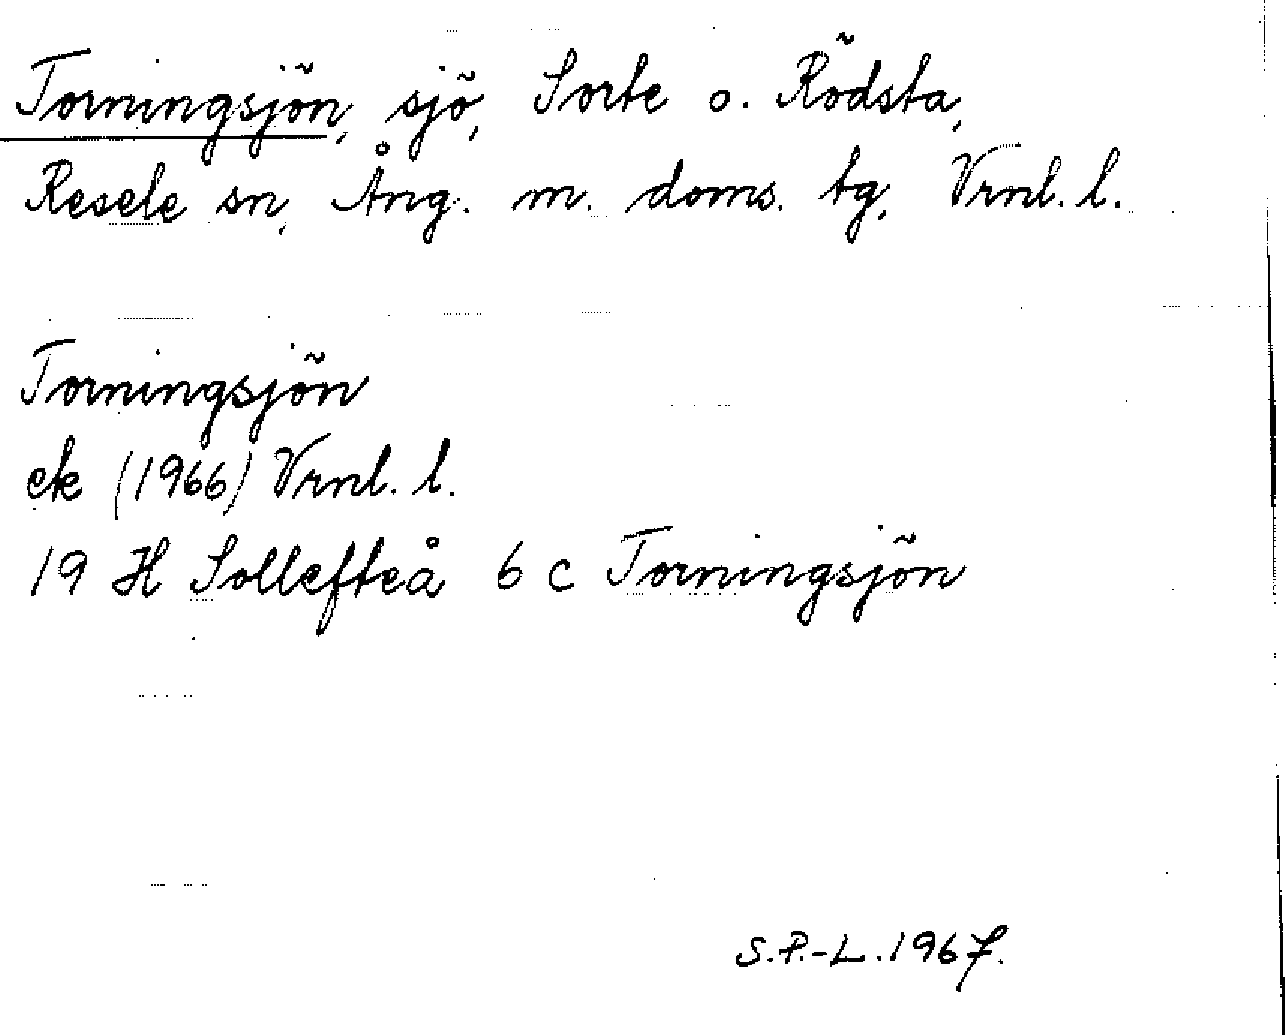 Torningsjön, sjö, Sorte o. Rödsta,
Resele sn, Ång. m. doms. tg, Vrnl. l.
Torningsjön
ek (1966) Vrnl. l.
19 H Sollefteå 6 c Torningsjön
S.P.-L. 1967.